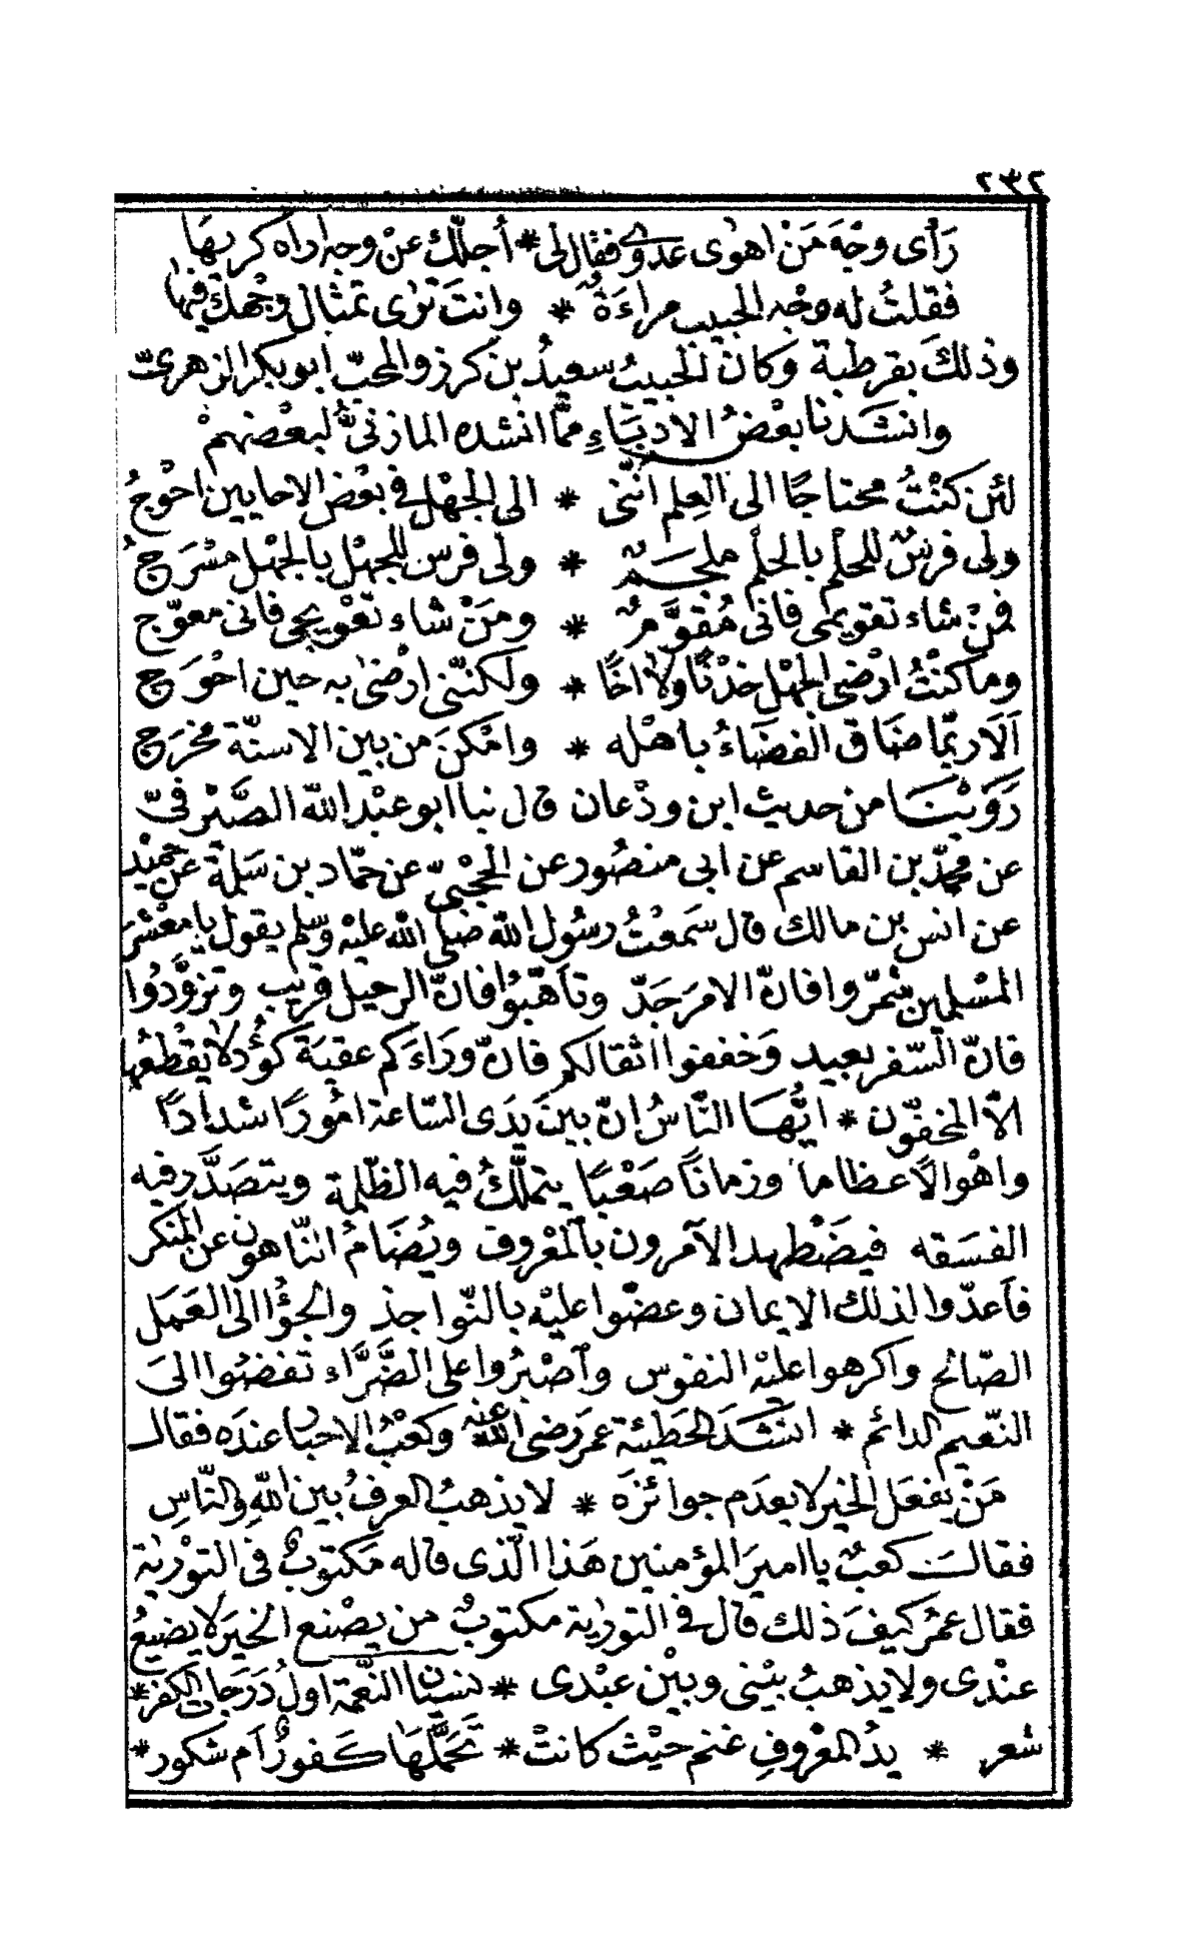 ٢٣٢
رَأى وجْهَ مَنْ اهوٰى عدوّى فقال لى * أجلّك عنْ وجه اراه كريهَا
فقلتُ له وجه الحبيب مراءَةٌ * وانتَ ترٰى تمثال وجْهك فيها
وذلكَ بقرطبة وكان الحبيبُ سعيدُ بن كرز والمحبّ ابو بكر الزهرىّ
وانشدنا بعْضُ الادبَاءِ ممَّا انشده المازنىُّ لبعْضهمْ
لئن كنْتُ محتاجًا الى العِلم انّنى * الى الجهْل فى بعْض الاحايين احْوجُ
ولى فرسٌ للحلْم بالحلْم ملجمٌ * ولى فرس للجهْل بالجهْل مسْرَجُ
فمنْ شاء تقويمى فانى مُقوَّمٌ * ومَنْ شاء تعْويجى فانى معوّج
وما كنْتُ ارْضى الجهْل خدْنًا ولا اخًا * ولكنّنى ارْضىٰ به حين احْوَج
اَلَا ربّما ضَاق الفضَاءُ باهْله * وامْكنَ من بين الاسنّة مخرَج
رَوَيْنَا من حديث ابن ودْعان قال نبا ابو عبْد الله الصَّيْرفىّ
عن محمّد بن القاسم عن ابى منصُور عن الحجْبىّ عن حمّاد بن سَلمةَ عنْ حميْد
عن انس بن مالك قال سَمعْتُ رسُول الله صَلى الله عليْه وسلم يقول يا معْشَر
المسْلمين شمّروا فانّ الامرَ جَدّ وتأهّبُوا فانّ الرحيل قريب وتزوَّدُوا
فانّ السّفر بعيد وَخففوا اثقالكم فانّ ورَاءَكم عقبَة كؤُد لا يقْطعُها
الّا المخفّون * ايُّهَا النّاسُ انّ بينَ يدَى السّاعة امُورًا شدادًا
واهْوالًا عظامًا وزمانًا صَعْبًا يتملّكُ فيه الظّلمة ويتصَدَّر فيه
الفسَقه فيضَْطهد الآمرون بالمعْروف ويُضَامُ النّاهون عن المنْكر
فأعدّوا لذلك الايمان وعضّوا عليْه بالنّواجذ والجؤُا الى العَمَل
الصّالح واكرهوا عليْه النفوس وأصْبرُوا على الضَّرَّاء تفضُوا الىَ
النّعيم الدائم * انشدَ الحَطيئة عمرَ رضى الله عنه وكعْبُ الاحبار عندَه فقال
مَنْ يفعَل الخير لا يعدَم جوائزَه * لا يذهبُ العرفُ بين اللهِ والنّاسِ
فقال كعبٌ يا اميرَ المؤمنين هَذا الّذى قاله مَكتوبٌ فى التوْرٰية
فقال عمَر كيفَ ذلك قال فى التورٰية مكتوبٌ من يصْنع الخيرَ لا يضيعُ
عنْدى ولا يذهبُ بيْنى وبيْن عبْدى * نسيَان النّعْمة اولُ دَرَجات الكفر *
شعر * يدُ المعْروفِ غنم حيْث كانتْ * تَحمَّلهَا كَفورٌ اَم شكور *